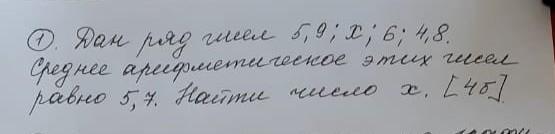 ①. Дан ряд чисел 5,9; х; 6; 4,8.
Среднее арифметическое этих чисел
равно 5,7. Найти число х. [4б]